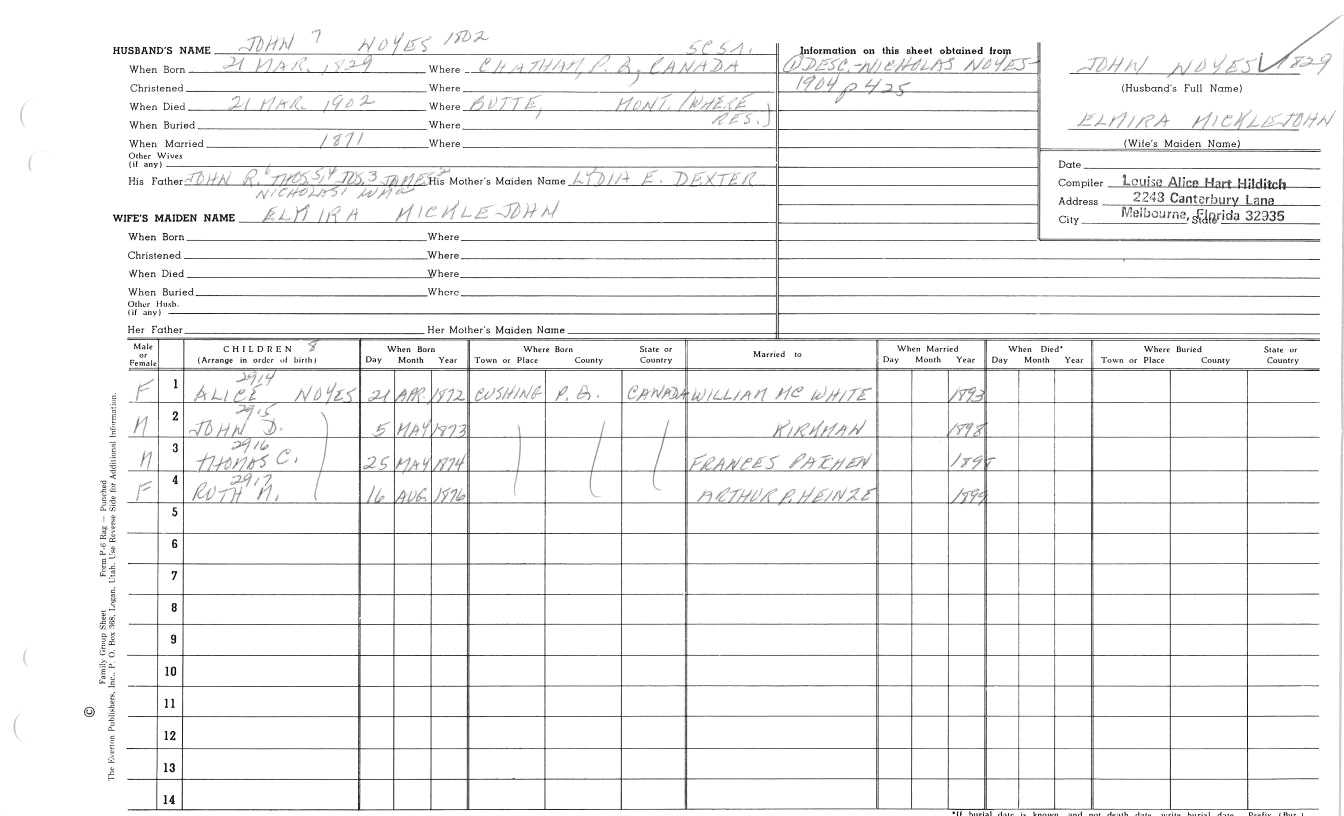 HUSBAND'S NAME JOHN 7 NOYES 1802 SCSA.
When Born 21 MAR. 1829 Where CHATHAM, P. Q., CANADA
Christened Where
When Died 21 MAR. 1902 Where BUTTE, MONT. (WHERE RES.)
When Buried Where
When Married 1871 Where
Other Wives
(if any)
His Father JOHN R.6 THOS 5, 4 JOS. 3 JAMES 2 His Mother's Maiden Name LYDIA E. DEXTER
NICHOLAS 1 WM
WIFE'S MAIDEN NAME ELMIRA MICKLEJOHN
When Born Where
Christened Where
When Died Where
When Buried Where
Other Husb.
(if any)
Her Father Her Mother's Maiden Name
Information on this sheet obtained from
① DESC.-NICHOLAS NOYES-
1904 p 425
JOHN NOYES ✓ 1829
(Husband's Full Name)
ELMIRA MICKLEJOHN
(Wife's Maiden Name)
Date
Compiler Louise Alice Hart Hilditch
Address 2243 Canterbury Lane
City Melbourne, Florida 32935 State
Male or Female CHILDREN 8 (Arrange in order of birth) When Born Day Month Year Where Born Town or Place County State or Country Married to When Married Day Month Year When Died* Day Month Year Where Buried Town or Place County State or Country
2914
F 1 ALICE NOYES 21 APR. 1872 CUSHING P. Q. CANADA WILLIAM MC WHITE 1893
2915
M 2 JOHN D. 5 MAY 1873 KIRKMAN 1898
2916
M 3 THOMAS C. 25 MAY 1874 FRANCES PATCHEN 189
2917
F 4 RUTH M. 16 AUG. 1876 ARTHUR P. HEINZE 1899
5
6
7
8
9
10
11
12
13
14
*If burial date is known, and not death date, write burial date. Prefix (Bur.)
Family Group Sheet Form P-6 Rag — Punched
© The Everton Publishers, Inc., P. O. Box 368, Logan, Utah. Use Reverse Side for Additional Information.